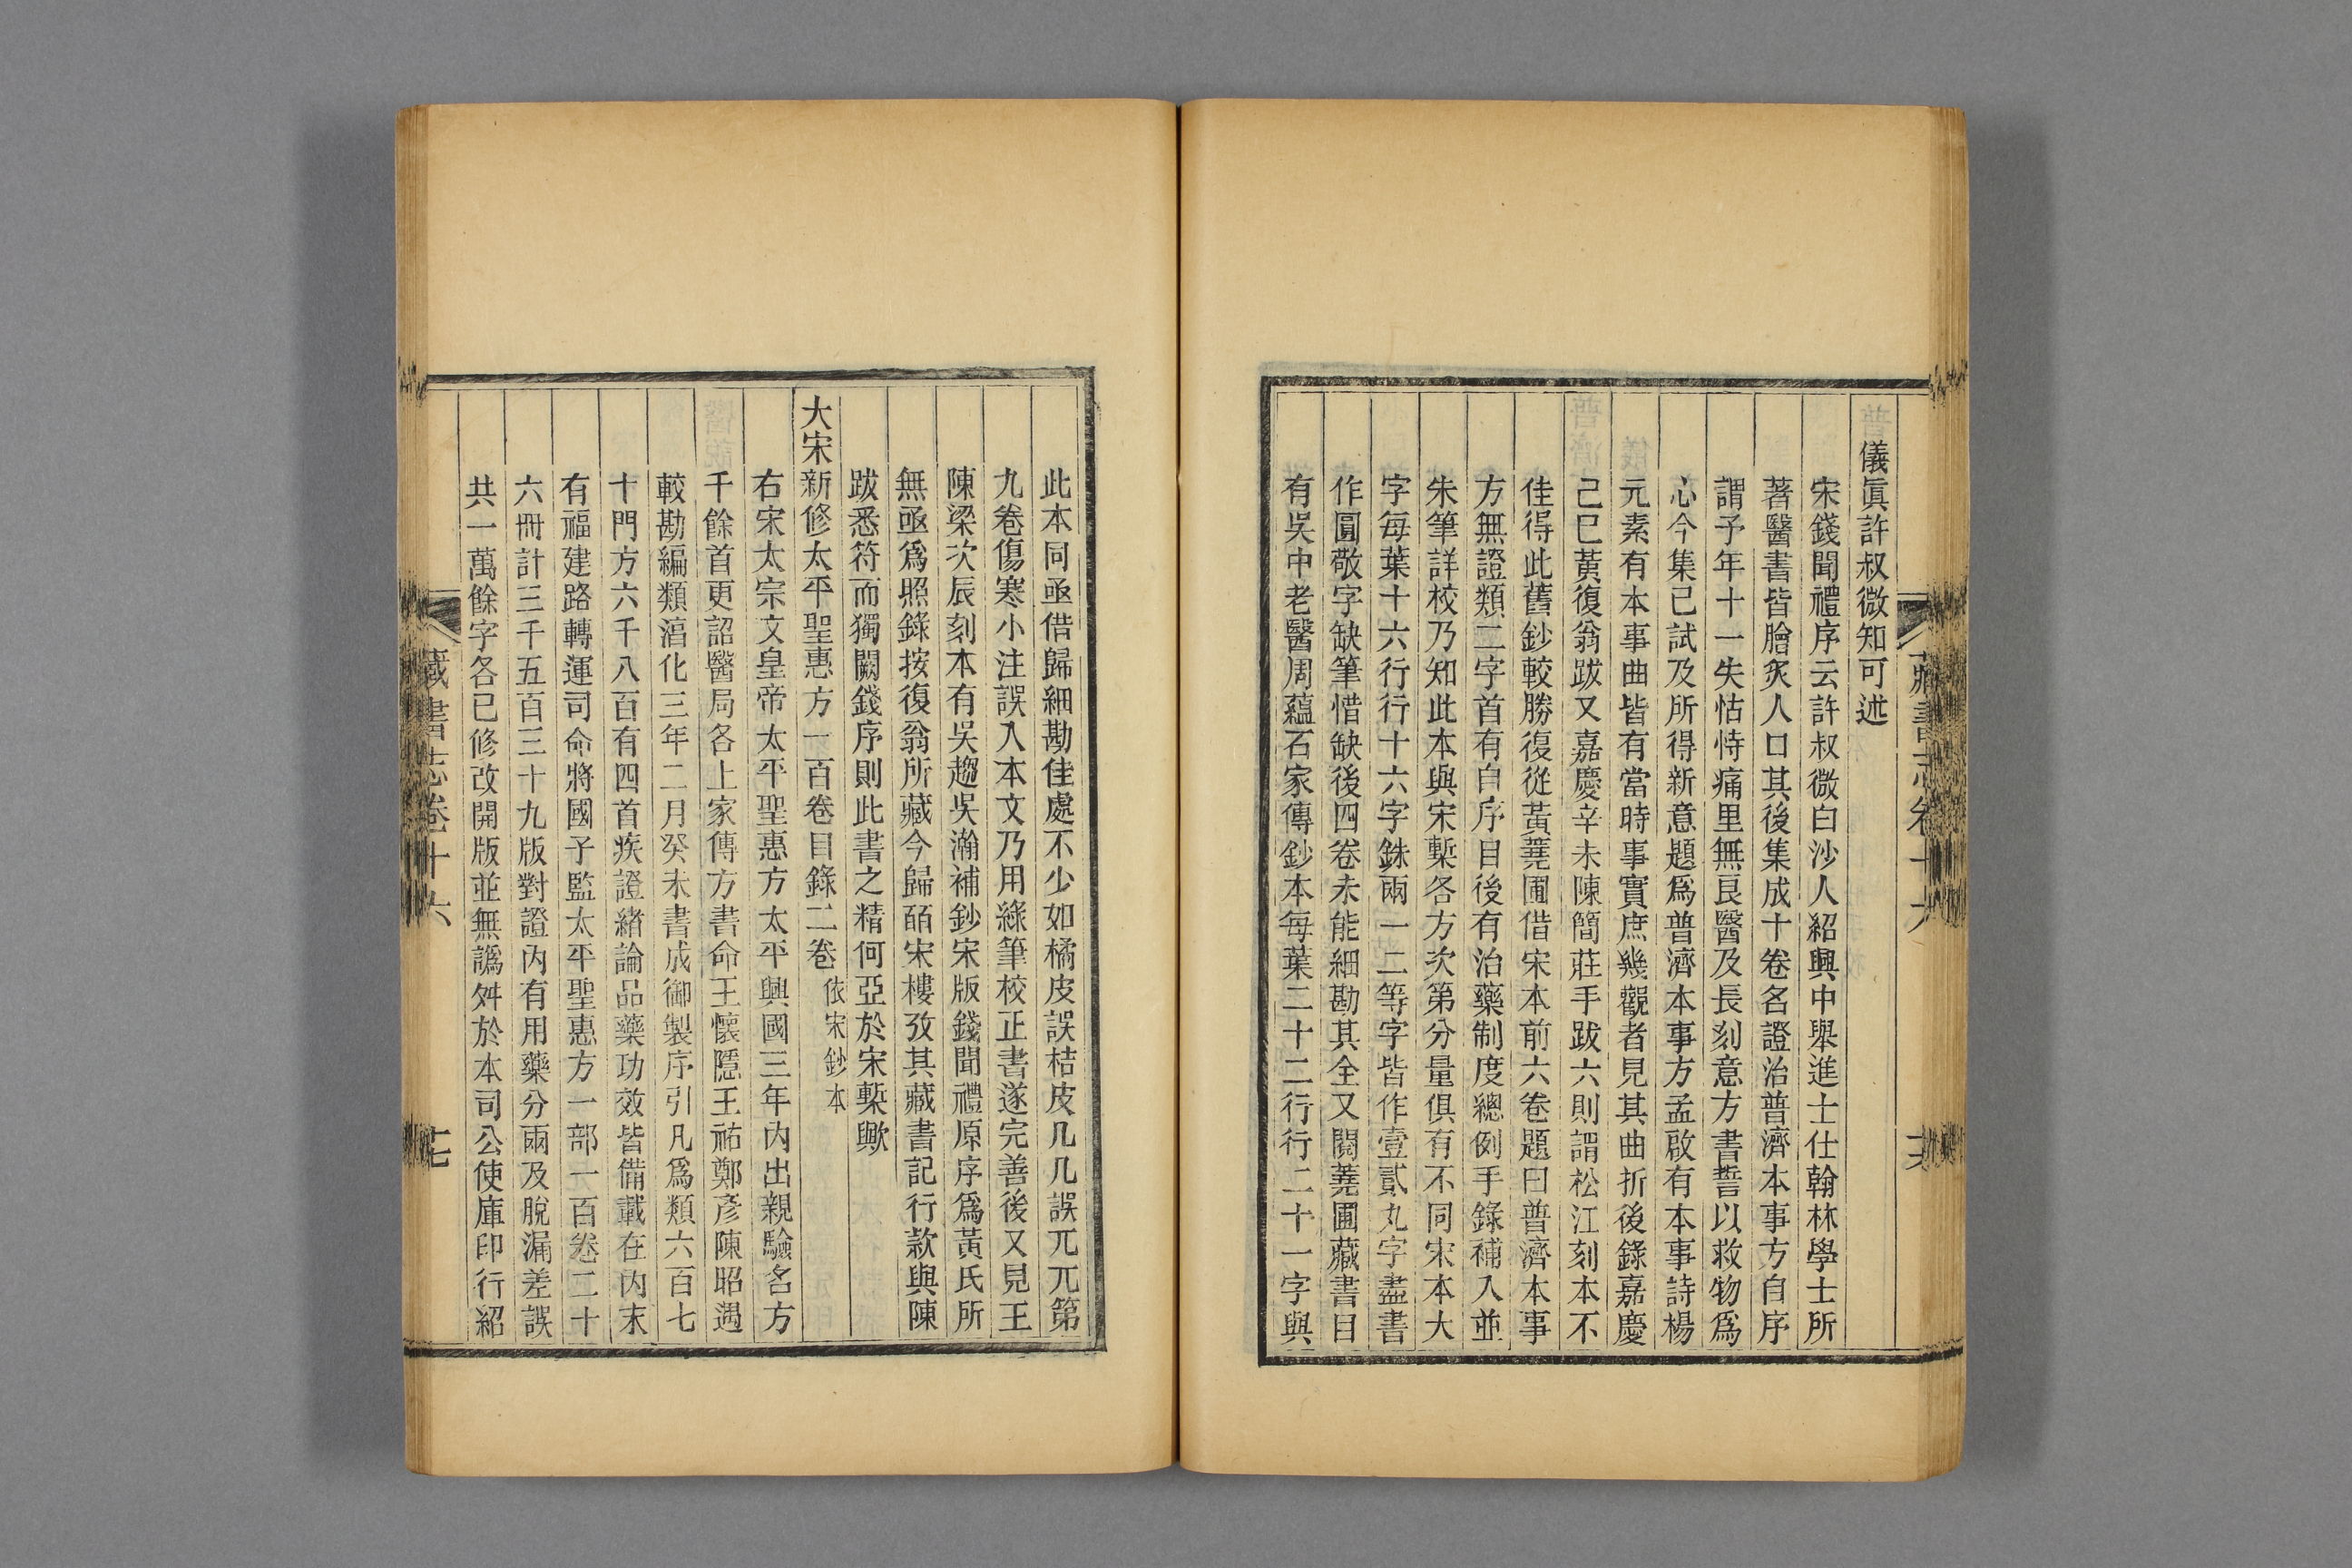 藏書志卷十六
儀眞許叔微知可述
宋錢聞禮序云許叔微白沙人紹興中舉進士仕翰林學士所
著醫書皆膾炙人口其後集成十卷名證治普濟本事方自序
謂予年十一失怙恃痛里無良醫及長刻意方書誓以救物爲
心今集已試及所得新意題爲普濟本事方孟啟有本事詩楊
元素有本事曲皆有當時事實庶幾觀者見其曲折後錄嘉慶
己巳黃復翁跋又嘉慶辛未陳簡莊手跋六則謂松江刻本不
佳得此舊鈔較勝復從黃蕘圃借宋本前六卷題曰普濟本事
方無證類二字首有自序目後有治藥制度總例手錄補入並
朱筆詳校乃知此本與宋槧各方次第分量俱有不同宋本大
字每葉十六行行十六字銖兩一二等字皆作壹貳丸字盡書
作圓敬字缺筆惜缺後四卷未能細勘其全又閱蕘圃藏書目
有吳中老醫周蘊石家傳鈔本每葉二十二行行二十一字與
此本同亟借歸細勘佳處不少如橘皮誤桔皮几几誤兀兀第
九卷傷寒小注誤入本文乃用綠筆校正書遂完善後又見王
陳梁次辰刻本有吳趨吳瀚補鈔宋版錢聞禮原序爲黃氏所
無亟爲照錄按復翁所藏今歸皕宋樓攷其藏書記行款與陳
跋悉符而獨闕錢序則此書之精何亞於宋槧歟
大宋新修太平聖惠方一百卷目錄二卷 依宋鈔本
右宋太宗文皇帝太平聖惠方太平興國三年內出親驗名方
千餘首更詔醫局各上家傳方書命王懷隱王祐鄭彥陳昭遇
較勘編類淳化三年二月癸未書成御製序引凡爲類六百七
十門方六千八百有四首疾證緒論品藥功效皆備載在內末
有福建路轉運司命將國子監太平聖惠方一部一百卷二十
六冊計三千五百三十九版對證內有用藥分兩及脫漏差誤
共一萬餘字各已修改開版並無譌舛於本司公使庫印行紹
藏書志卷十六